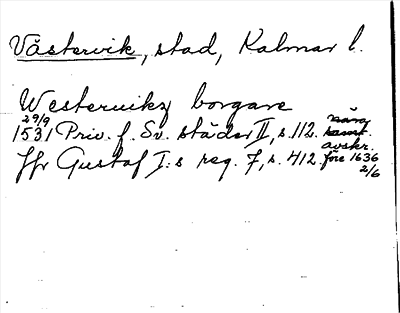 Västervik, stad, Kalmar l.
Westerwikz borgare
29/9
1531 Priv. f. Sv. städer II, s. 112.
avskr.
före 1636
2/6
Jfr Gustaf I:s reg. 7, s. 412.